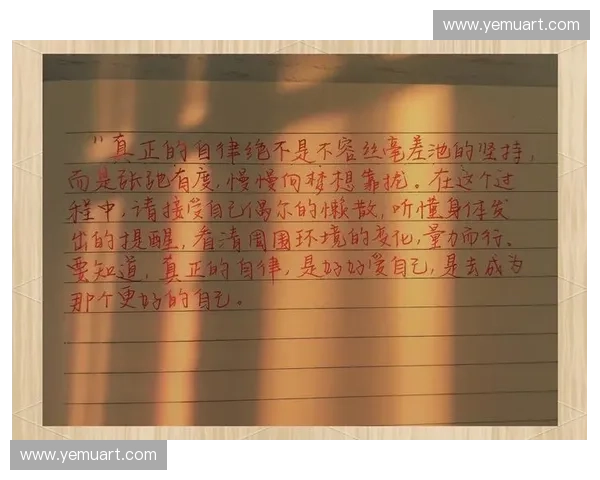 www.yemuart.com
"真正的自律绝不是不容丝毫差池的坚持,
而是张弛有度,慢慢向梦想靠拢。在这个过
程中,请接受自己偶尔的懒散,听懂身体发
出的提醒,看清周围环境的变化,量力而行。
要知道,真正的自律,是好好爱自己,是去成为
那个更好的自己。
www.yemuart.com